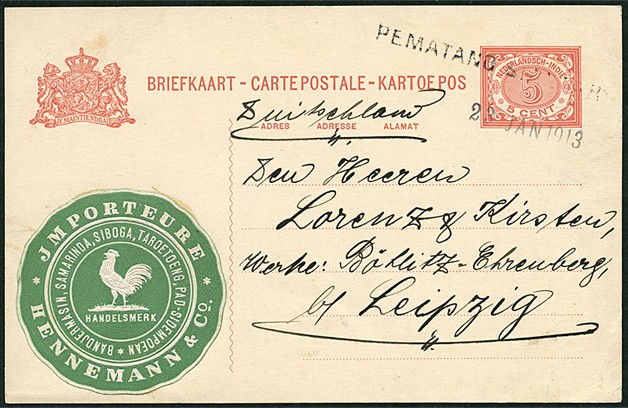 PEMATANG
NEDERLANDSCH-INDIË
5
5 CENT
JAN 1913
JE MAINTIENDRAI
BRIEFKAART - CARTE POSTALE - KARTOE POS
Duitschland
ADRES ADRESSE ALAMAT
Den Heeren
Lorenz & Kirsten,
Werke: Böhlitz-Ehrenberg,
b/ Leipzig
JMPORTEURE
HENNEMANN & Co.
BANDJERMASIN, SAMARINDA, SIBOGA, TAROETOENG, PAD-SIDEMPOEAN
HANDELSMERK